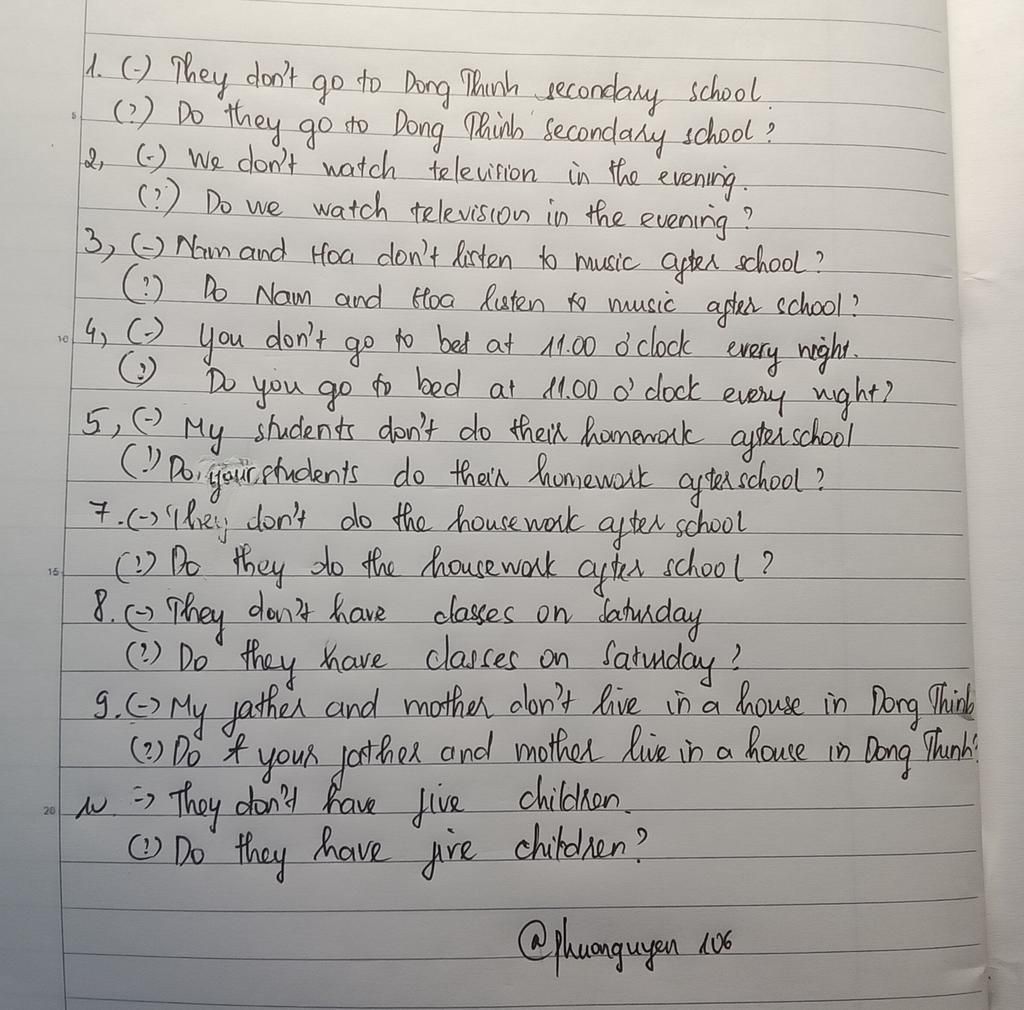 1. (-) They don't go to Dong Thinh secondary school.
5
(?) Do they go to Dong Thinh secondary school?
2, (-) We don't watch television in the evening.
(?) Do we watch television in the evening?
3, (-) Nam and Hoa don't listen to music after school?
(?) Do Nam and Hoa listen to music after school?
10
4, (-) You don't go to bed at 11.00 o'clock every night.
(?) Do you go to bed at 11.00 o'clock every night?
5, (-) My students don't do their homework after school
(?) Do your students do their homework after school?
7. (-) They don't do the housework after school
15
(?) Do they do the housework after school?
8. (-) They don't have classes on Saturday
(?) Do they have classes on Saturday?
9. (-) My father and mother don't live in a house in Dong Thinh
(?) Do your father and mother live in a house in Dong Thinh?
20
10 => They don't have five children.
(?) Do they have five children?
@phuonguyen 106